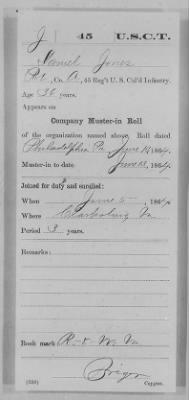 J 45 U.S.C.T.
Daniel Jones
Pvt, Co. A, 45 Reg't U. S. Col'd Infantry.
Age 36 years.
Appears on
Company Muster-in Roll
of the organization named above. Roll dated
Philadelphia Pa, June 13, 1864.
Muster-in to date June 13, 1864.
Joined for duty and enrolled:
When June 5, 1864.
Where Clarksburg Va
Period 3 years.
Remarks:
Book mark
(339) Copyist.